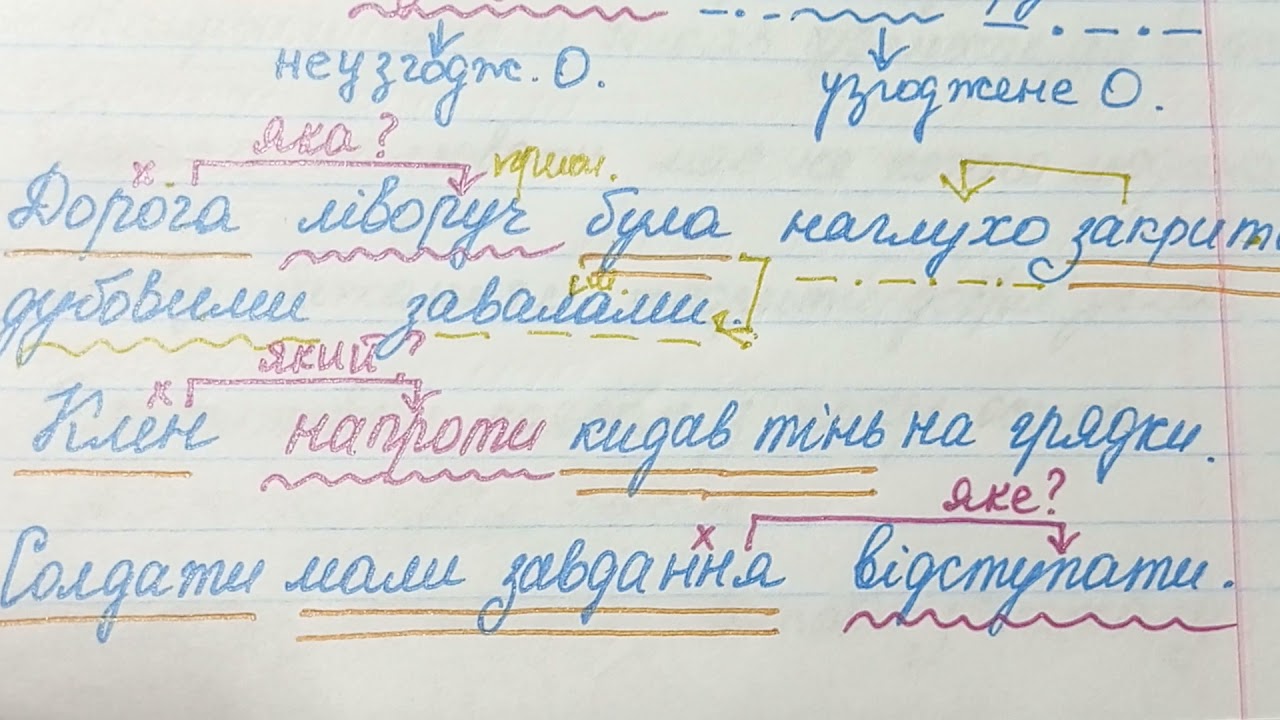 неузгодж. О. узгоджене О.
яка?
Дорога ліворуч була наглухо закрит
дубовими завалами.
який?
х
Клен напроти кидав тінь на грядки.
яке?
х
Солдати мали завдання відступати.